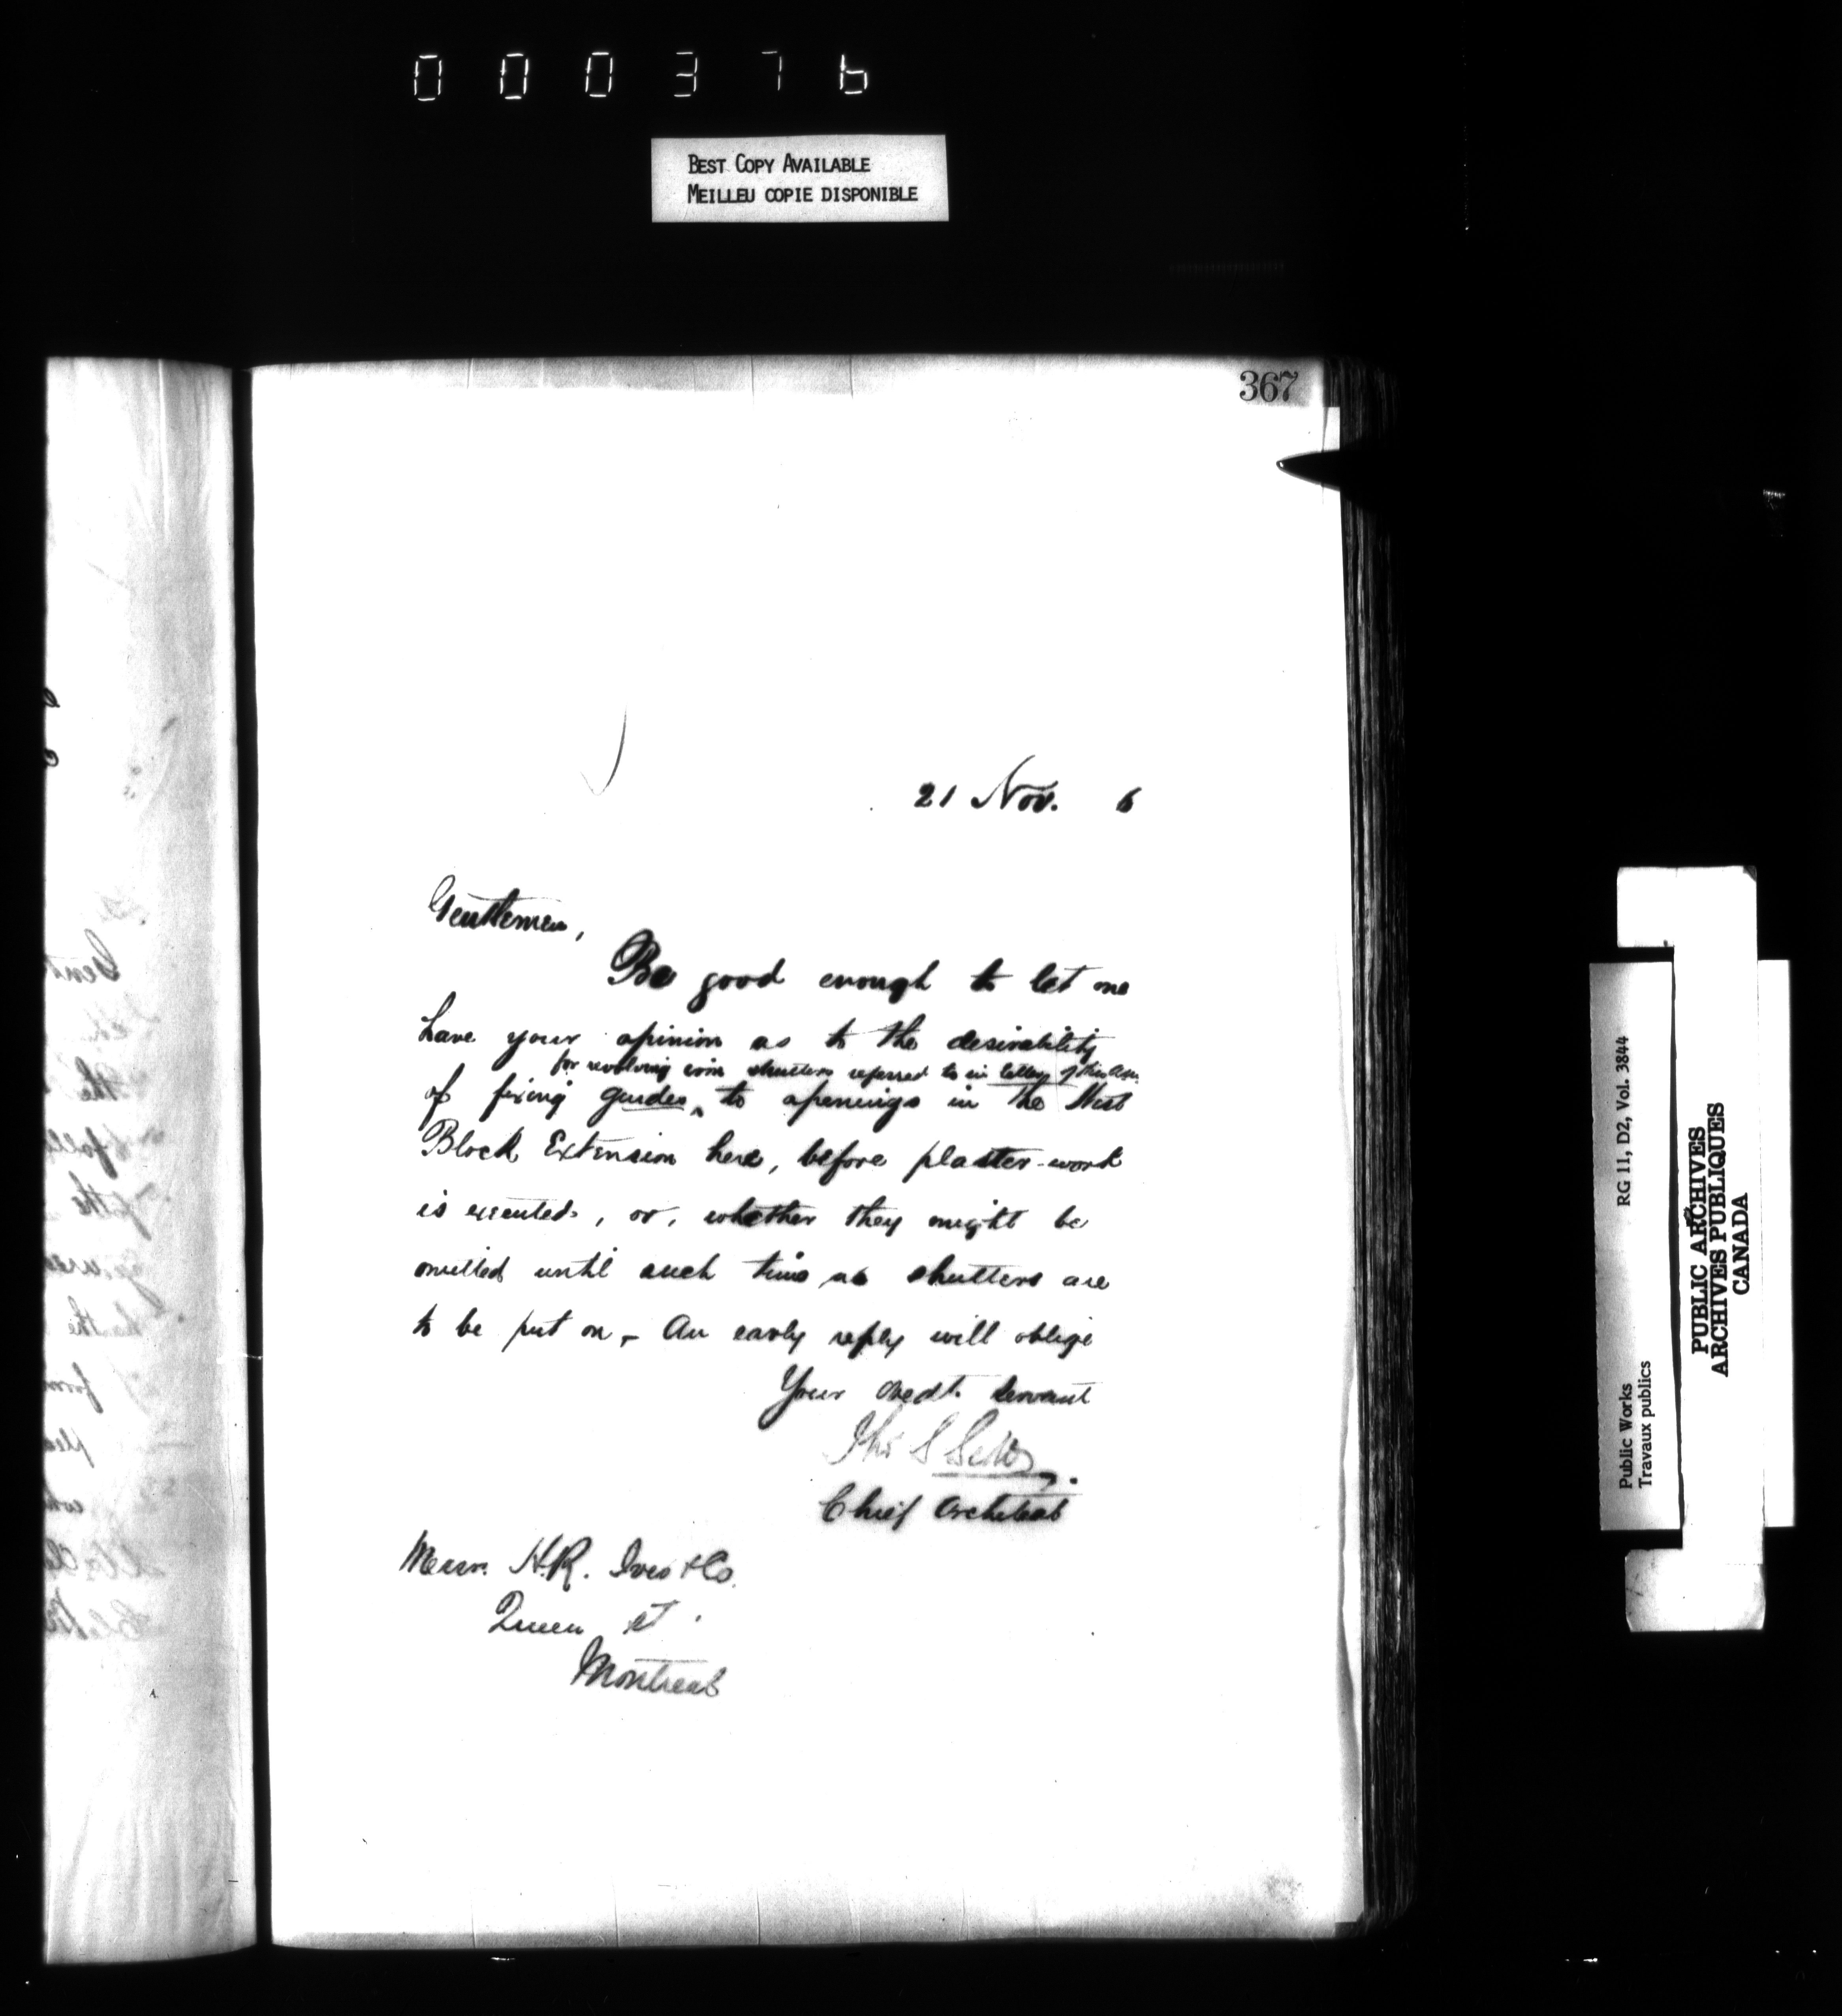 000376
BEST COPY AVAILABLE
MEILLEU COPIE DISPONIBLE
367
21 Nov. 6
Gentlemen,
Be good enough to let me
have your opinion as to the desirability
for revolving iron shutters referred to in letter of this
of fixing guides to openings in the West
Block Extension here, before plaster-work
is executed, or, whether they might be
omitted until such time as shutters are
to be put on, - An early reply will oblige
Your obedt. servant
Thos S Scott
Chief Architect
Messrs. H.R. Ives & Co.
Queen St.
Montreal
Public Works RG 11, D2, Vol. 3844
Travaux publics
PUBLIC ARCHIVES
ARCHIVES PUBLIQUES
CANADA